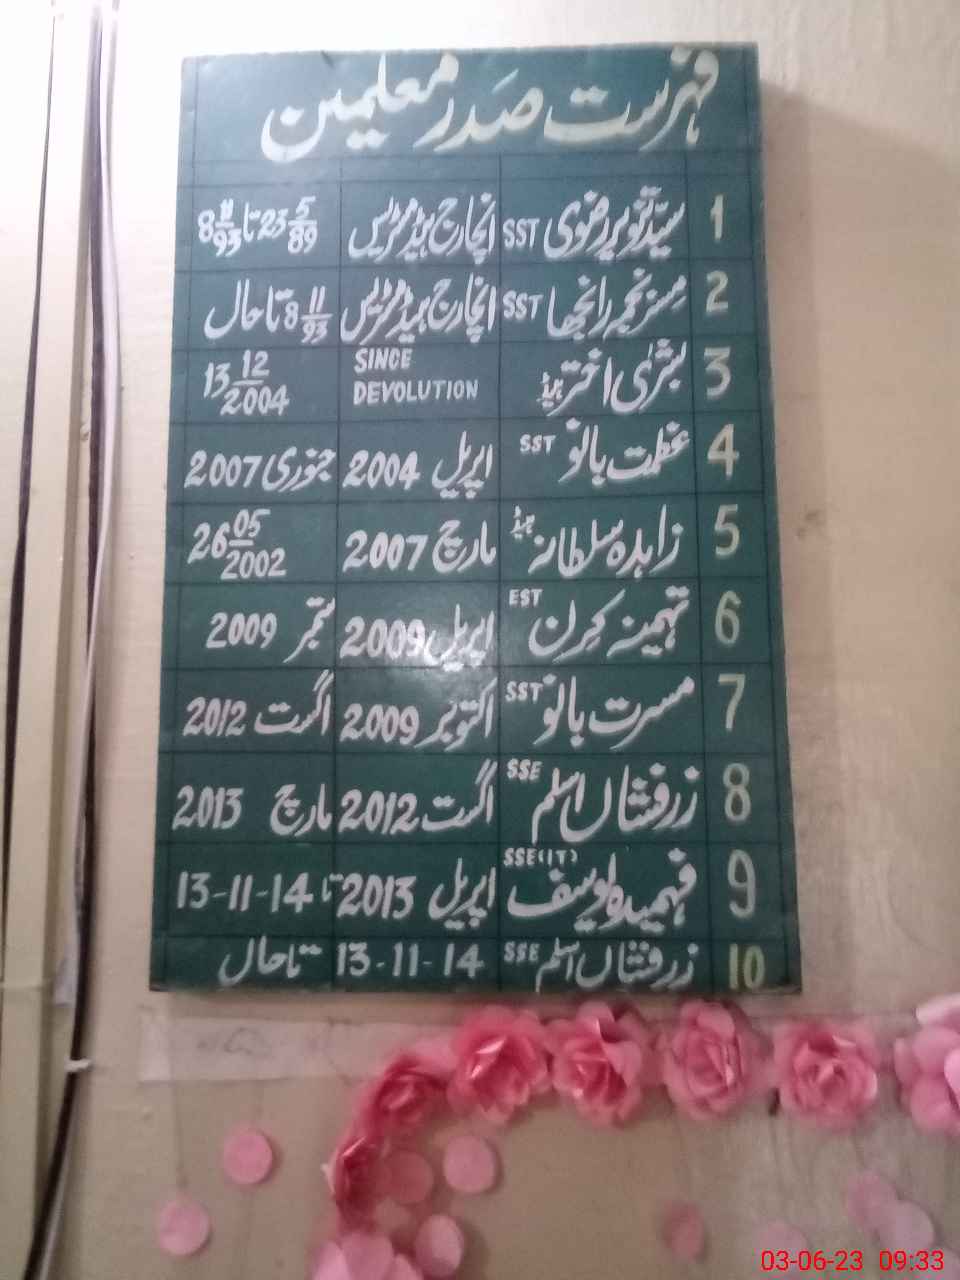 فہرست صدر معلمین
1 سیّد تنویر رضوی SST انچارج ہیڈمسٹریس 23 5/89 تا 8 11/93
2 مسز نجمہ رانجھا SST انچارج ہیڈمسٹریس 8 11/93 تا حال
3 بشریٰ اختر ہیڈ SINCE DEVOLUTION 13 12/2004
4 عظمت بانو SST اپریل 2004 جنوری 2007
5 زاہدہ سلطانہ ہیڈ مارچ 2007 26 05/2002
6 تہمینہ کرن EST اپریل 2009 ستمبر 2009
7 مسرت بانو SST اکتوبر 2009 اگست 2012
8 زرفشاں اسلم SSE اگست 2012 مارچ 2013
9 فہمیدہ یوسف SSE(IT) اپریل 2013 تا 13-11-14
10 زرفشاں اسلم SSE 13-11-14 تا حال
03-06-23 09:33